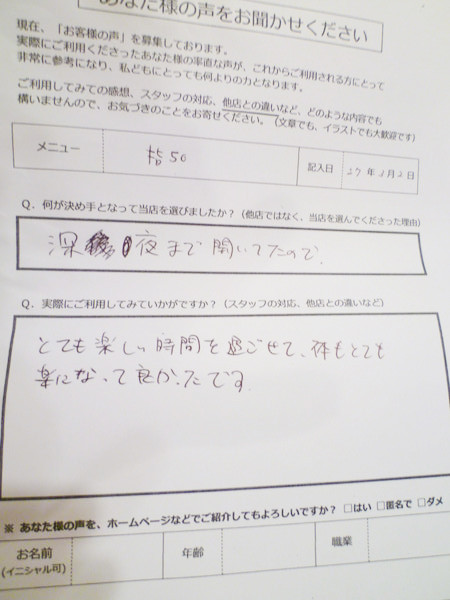 あなた様の声をお聞かせください
現在、「お客様の声」を募集しております。
実際にご利用くださったあなた様の率直な声が、これからご利用される方にとって
非常に参考になり、私どもにとっても何よりの力となります。
ご利用してみての感想、スタッフの対応、他店との違いなど、どのような内容でも
構いませんので、お気づきのことをお寄せください。(文章でも、イラストでも大歓迎です)
メニュー 50 記入日 27年 月 日
Q．何が決め手となって当店を選びましたか？(他店ではなく、当店を選んでくださった理由)
深夜まで開いてたので.
Q．実際にご利用してみていかがですか？(スタッフの対応、他店との違いなど)
とても楽しい時間を過ごせて、体もとても
楽になって良かったです.
※ あなた様の声を、ホームページなどでご紹介してもよろしいですか？ □はい □匿名で □ダメ
お名前 年齢 職業
(イニシャル可)